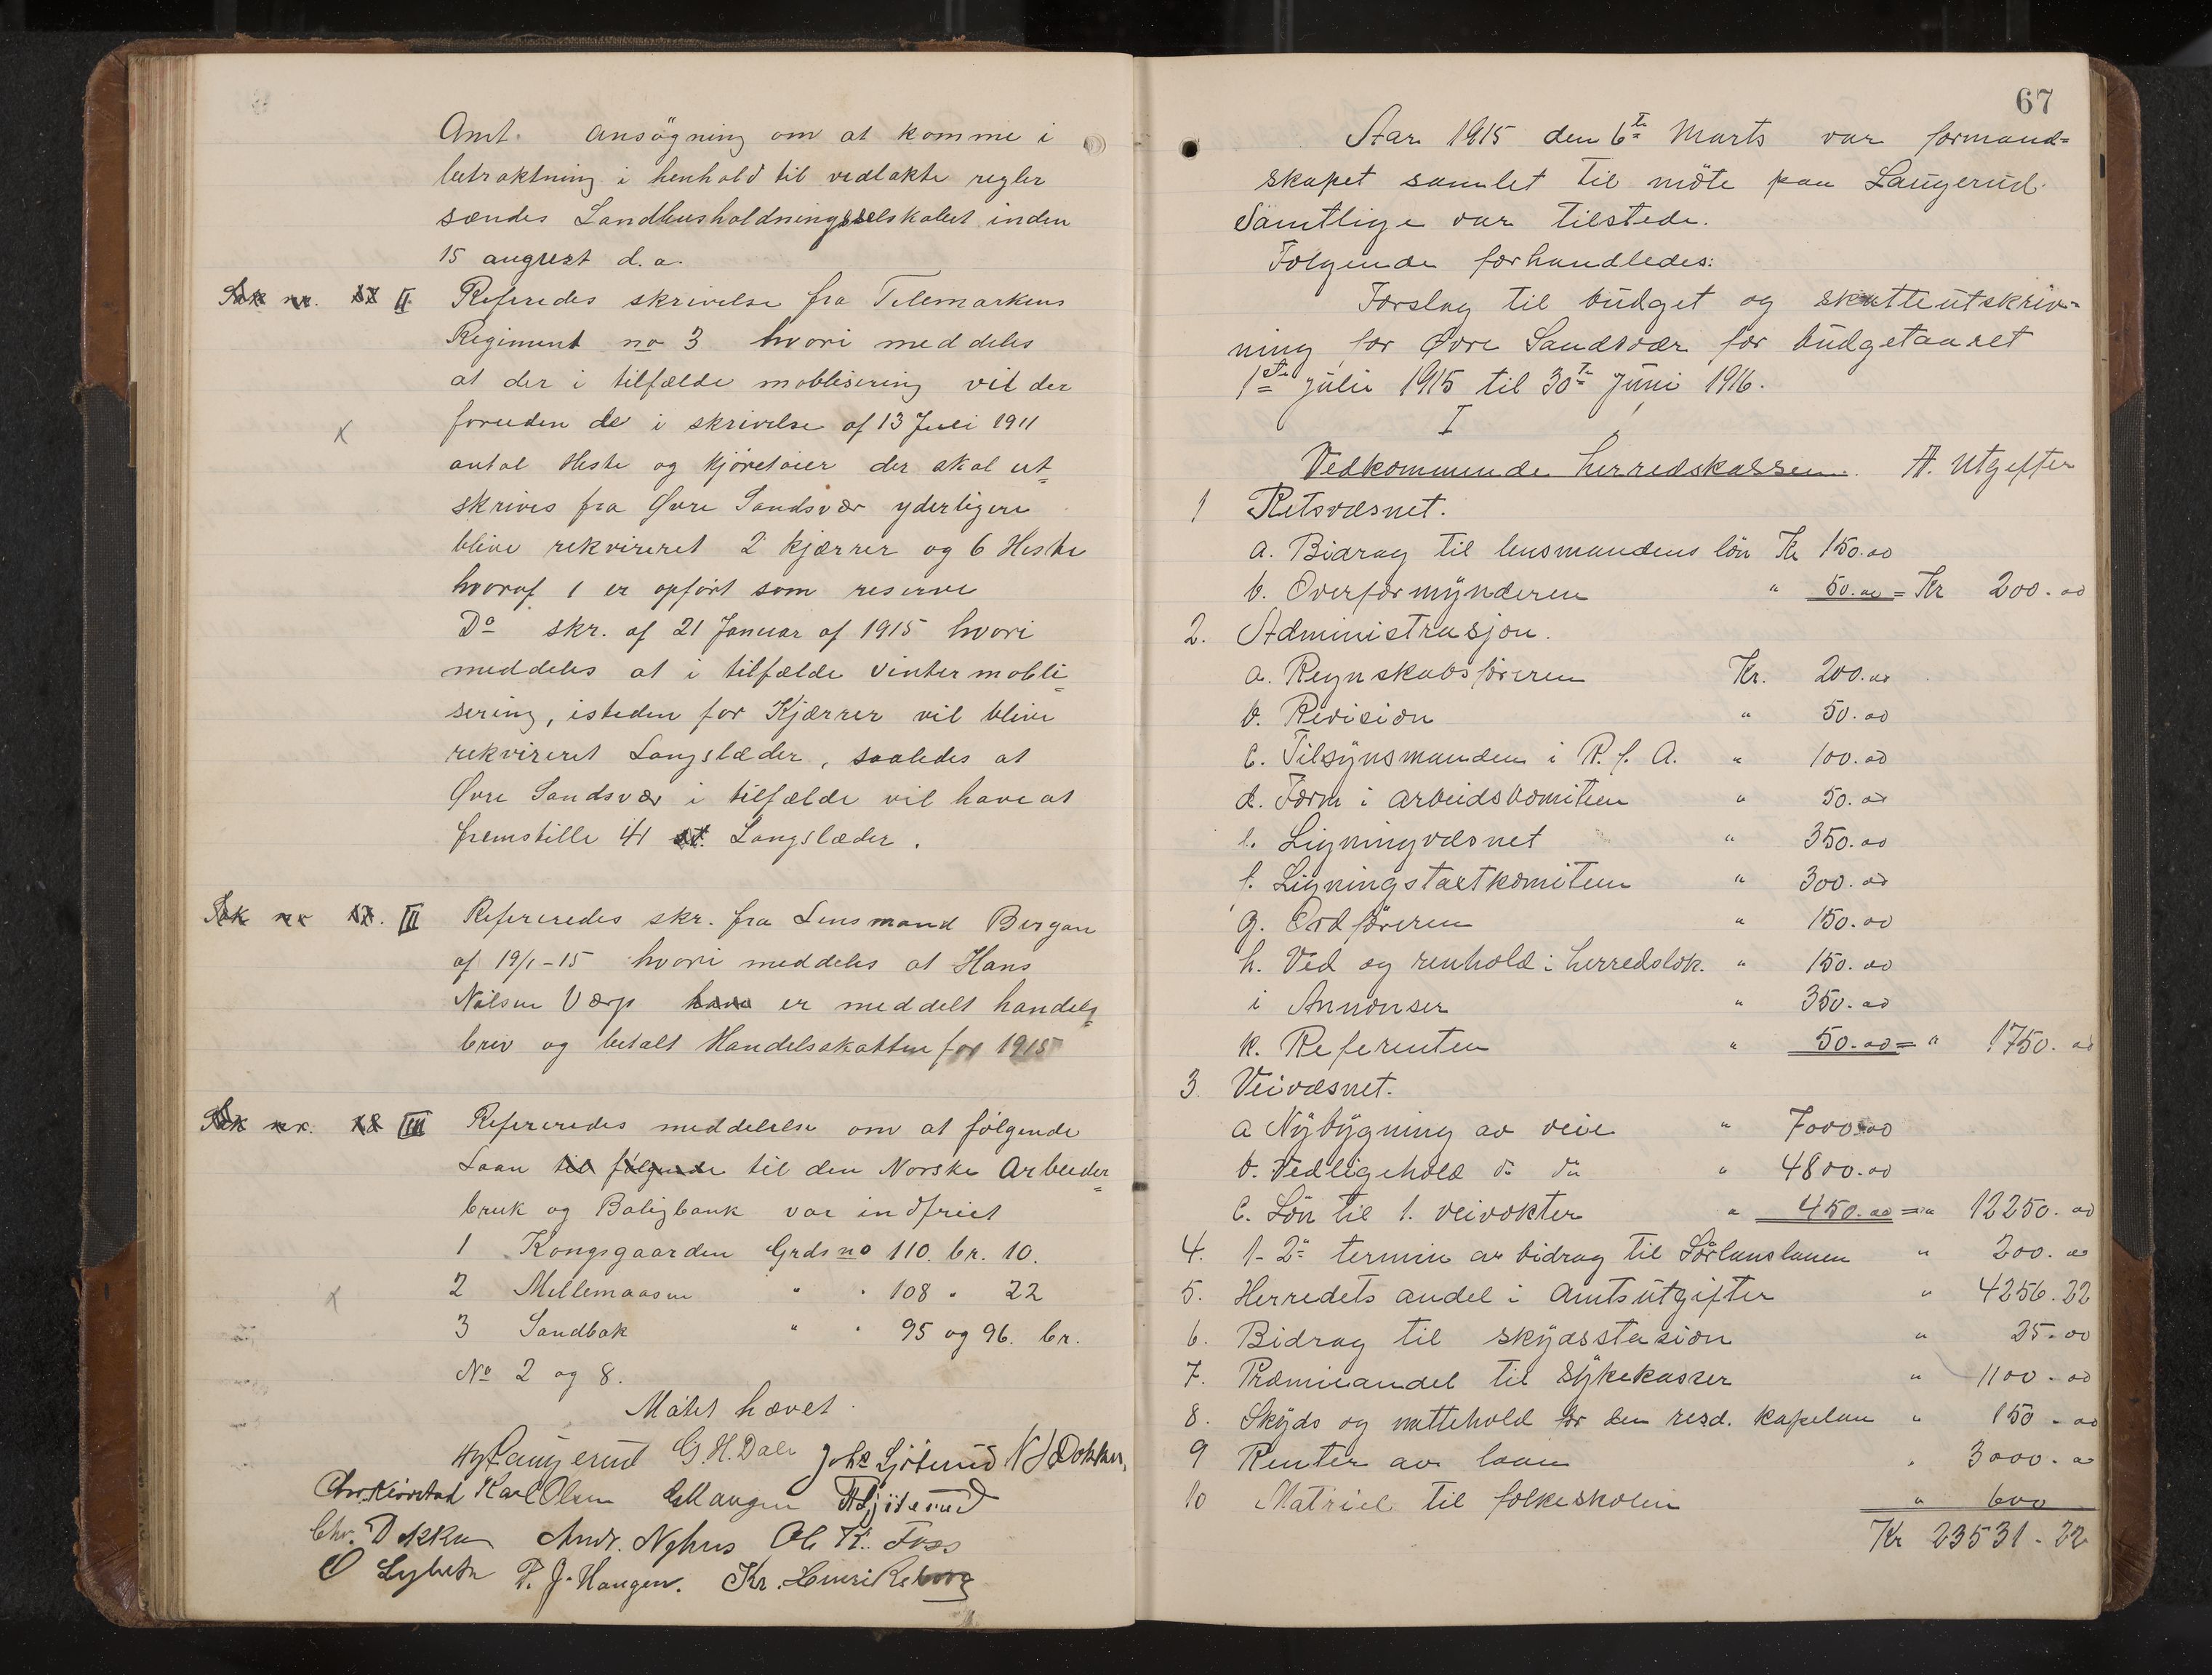 Amt. Ansögning om at komme i
betraktning i henhold til vedlakte regler
sændes Landhusholdningsselskabet inden
15 august d.a.
Sak nr. II Referedes skrivelse fra Telemarkens
Regiment no 3 hvori meddeles
at der i tilfælde moblisering vil der
foruden de i skrivelse af 13 Juli 1911
antal Heste og Kjøretøier der skal ut=
skrives fra Øvre Sandsvær yderligere
blive rekvireret 2 kjærrer og 6 Heste
hvoraf 1 er opført som reserve
Do skr. af 21 Januar af 1915 hvori
meddeles at i tilfælde vintermobli=
sering, isteden for Kjærrer vil blive
rekvireret Langslæder, saaledes at
Øvre Sandsvær i tilfælde vil have at
fremstille 41 st. Langslæder.
Sak nr III Refereredes skr. fra Lensmand Bergan
af 19/1-15 hvori meddeles at Hans
Nilsen Værp er meddelt handels=
brev og betalt Handelsskatten for 1915
Sak nr. IIII Refereredes meddelelse om at følgende
Laan til følgende til den Norske Arbeider=
bruk og Boligbank var indfriet
1 Kongsgaarden Grds no 110. br. 10.
2 Mellemaasen " " 108 " 22
3 Sandbak " " 95 og 96. br.
No 2 og 8.
Møtet hævet.
H Laugerud G.H. Dale Johs Sjöterud N J Dokken,
Chr. Kiørstad Karl Olsen Haugen Sjöterud
Chr. Dokken Andr. Nyhus Ole K. Foss
O Lybeck T. J. Haugen. Kr. Henriksborg
67
Aar 1915 den 6te Marts var formand=
skapet samlet til möte paa Laugerud.
Samtlige var tilstede.
Følgende forhandledes:
Forslag til budget og skatteutskriv=
ning for Øvre Sandsvær for budgetaaret
1ste juli 1915 til 30te juni 1916.
I
Vedkommende herredskassen. A. Utgifter
1 Retsvæsnet.
a. Bidrag til lensmandens lön Kr 150.00
b. Overformynderen " 50.00 = Kr 200.00
2. Administrasjon.
a. Regnskabsföreren Kr. 200.00
b. Revision " 50.00
c. Tilsynsmanden i R. f. A. " 100.00
d. Form i arbeidskomiteen " 50.00
e. Ligningvæsnet " 350.00
f. Ligningstakstkomiteen " 300.00
g. Ordföreren " 150.00
h. Ved og renhold i herredslok. " 150.00
i Annonser " 350.00
k. Referenten " 50.00 = " 1750.00
3. Veivæsnet.
a Nybygning av veie " 7000.00
b. Vedligehold do do " 4800.00
c. Lön til 1. veivokter " 450.00 = " 12250.00
4. 1-2 termin av bidrag til Sörlansbanen " 200.00
5. Herredets andel i Amtsutgifter " 4256.22
6. Bidrag til skydsstasion " 25.00
7. Præmieandel til sykekasser " 1100.00
8. Skyds og nattehold for den resd. kapelan " 150.00
9 Renter av laan " 3000.00
10 Matriel til folkeskolen " 600
Kr 23531.22